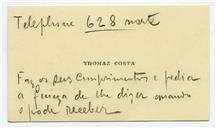 Telephone 628 norte
THOMAZ COSTA
Faz os seus cumprimentos e pede
a fineza de lhe dizer quando
o pode receber